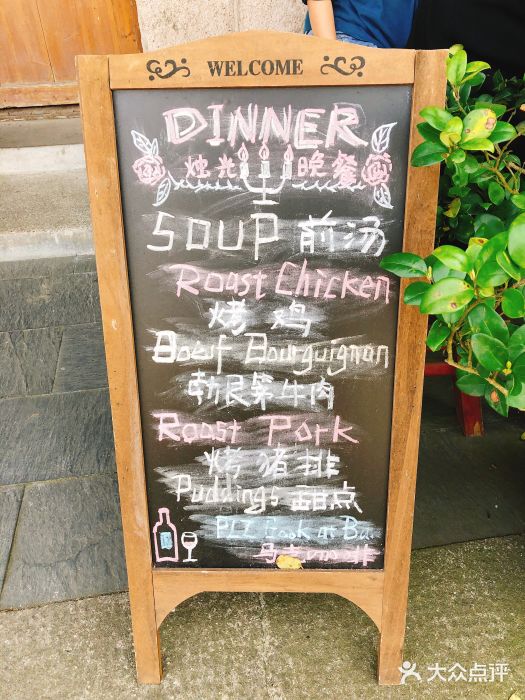 WELCOME
DINNER
烛光 晚餐
SOUP 前汤
Roast Chicken
烤鸡
Boeuf Bourguignon
勃艮第牛肉
Roast Pork
烤猪排
Puddings 甜点
PLZ Book at Bar
大众点评